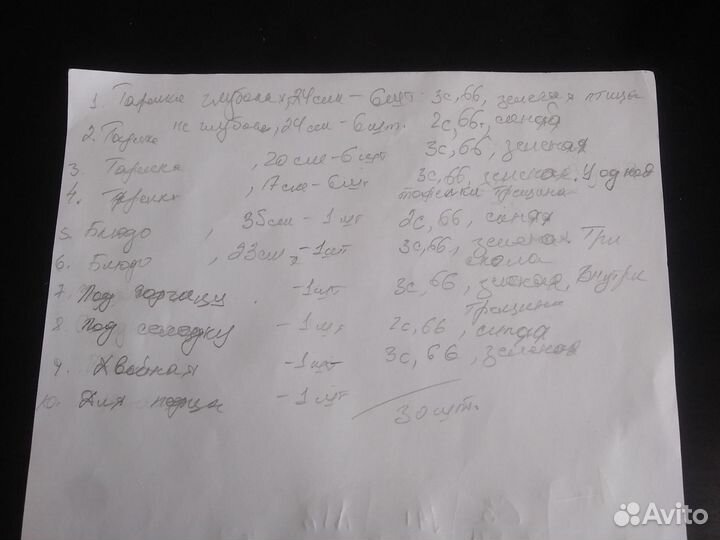 1. Тарелка глубокая, 24 см - 6 шт. 3с, 66, зеленая птицы
2. Тарелка не глубокая, 24 см - 6 шт. 2с, 66, синяя
3. Тарелка, 20 см - 6 шт 3с, 66, зеленая
4. Тарелка, 17 см - 6 шт 3с, 66, зеленая. У одной
тарелки трещина
5. Блюдо, 35 см - 1 шт 2с, 66, синяя
6. Блюдо, 23 см - 1 шт 3с, 66, зеленая. Три
скола
7. Под горчицу - 1 шт 3с, 66, зеленая, Внутри
трещина
8. Под селедку - 1 шт 2с, 66, синяя
9. Двойная - 1 шт 3с, 66, зеленая
10. Для перца - 1 шт
30 шт.
Avito